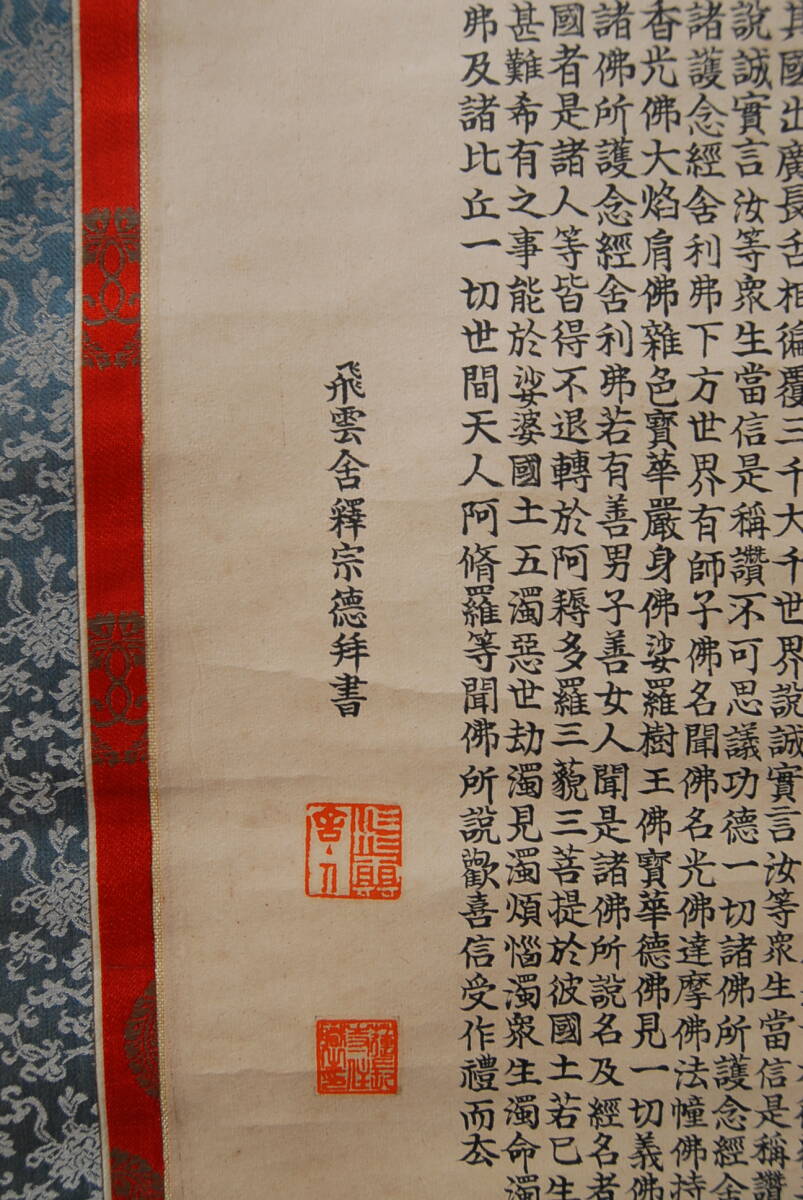 其國出廣長舌相徧覆三千大千世界說誠實言汝等衆生當信是稱讚
說誠實言汝等衆生當信是稱讚不可思議功德一切諸佛所護念經舍
諸護念經舍利弗下方世界有師子佛名聞佛名光佛達摩佛法幢佛持
香光佛大焰肩佛雜色寶華嚴身佛娑羅樹王佛寶華德佛見一切義佛
諸佛所護念經舍利弗若有善男子善女人聞是諸佛所說名及經名者
國者是諸人等皆得不退轉於阿耨多羅三藐三菩提於彼國土若已生
甚難希有之事能於娑婆國土五濁惡世劫濁見濁煩惱濁衆生濁命濁
弗及諸比丘一切世間天人阿脩羅等聞佛所說歡喜信受作禮而去
飛雲舍釋宗德拜書